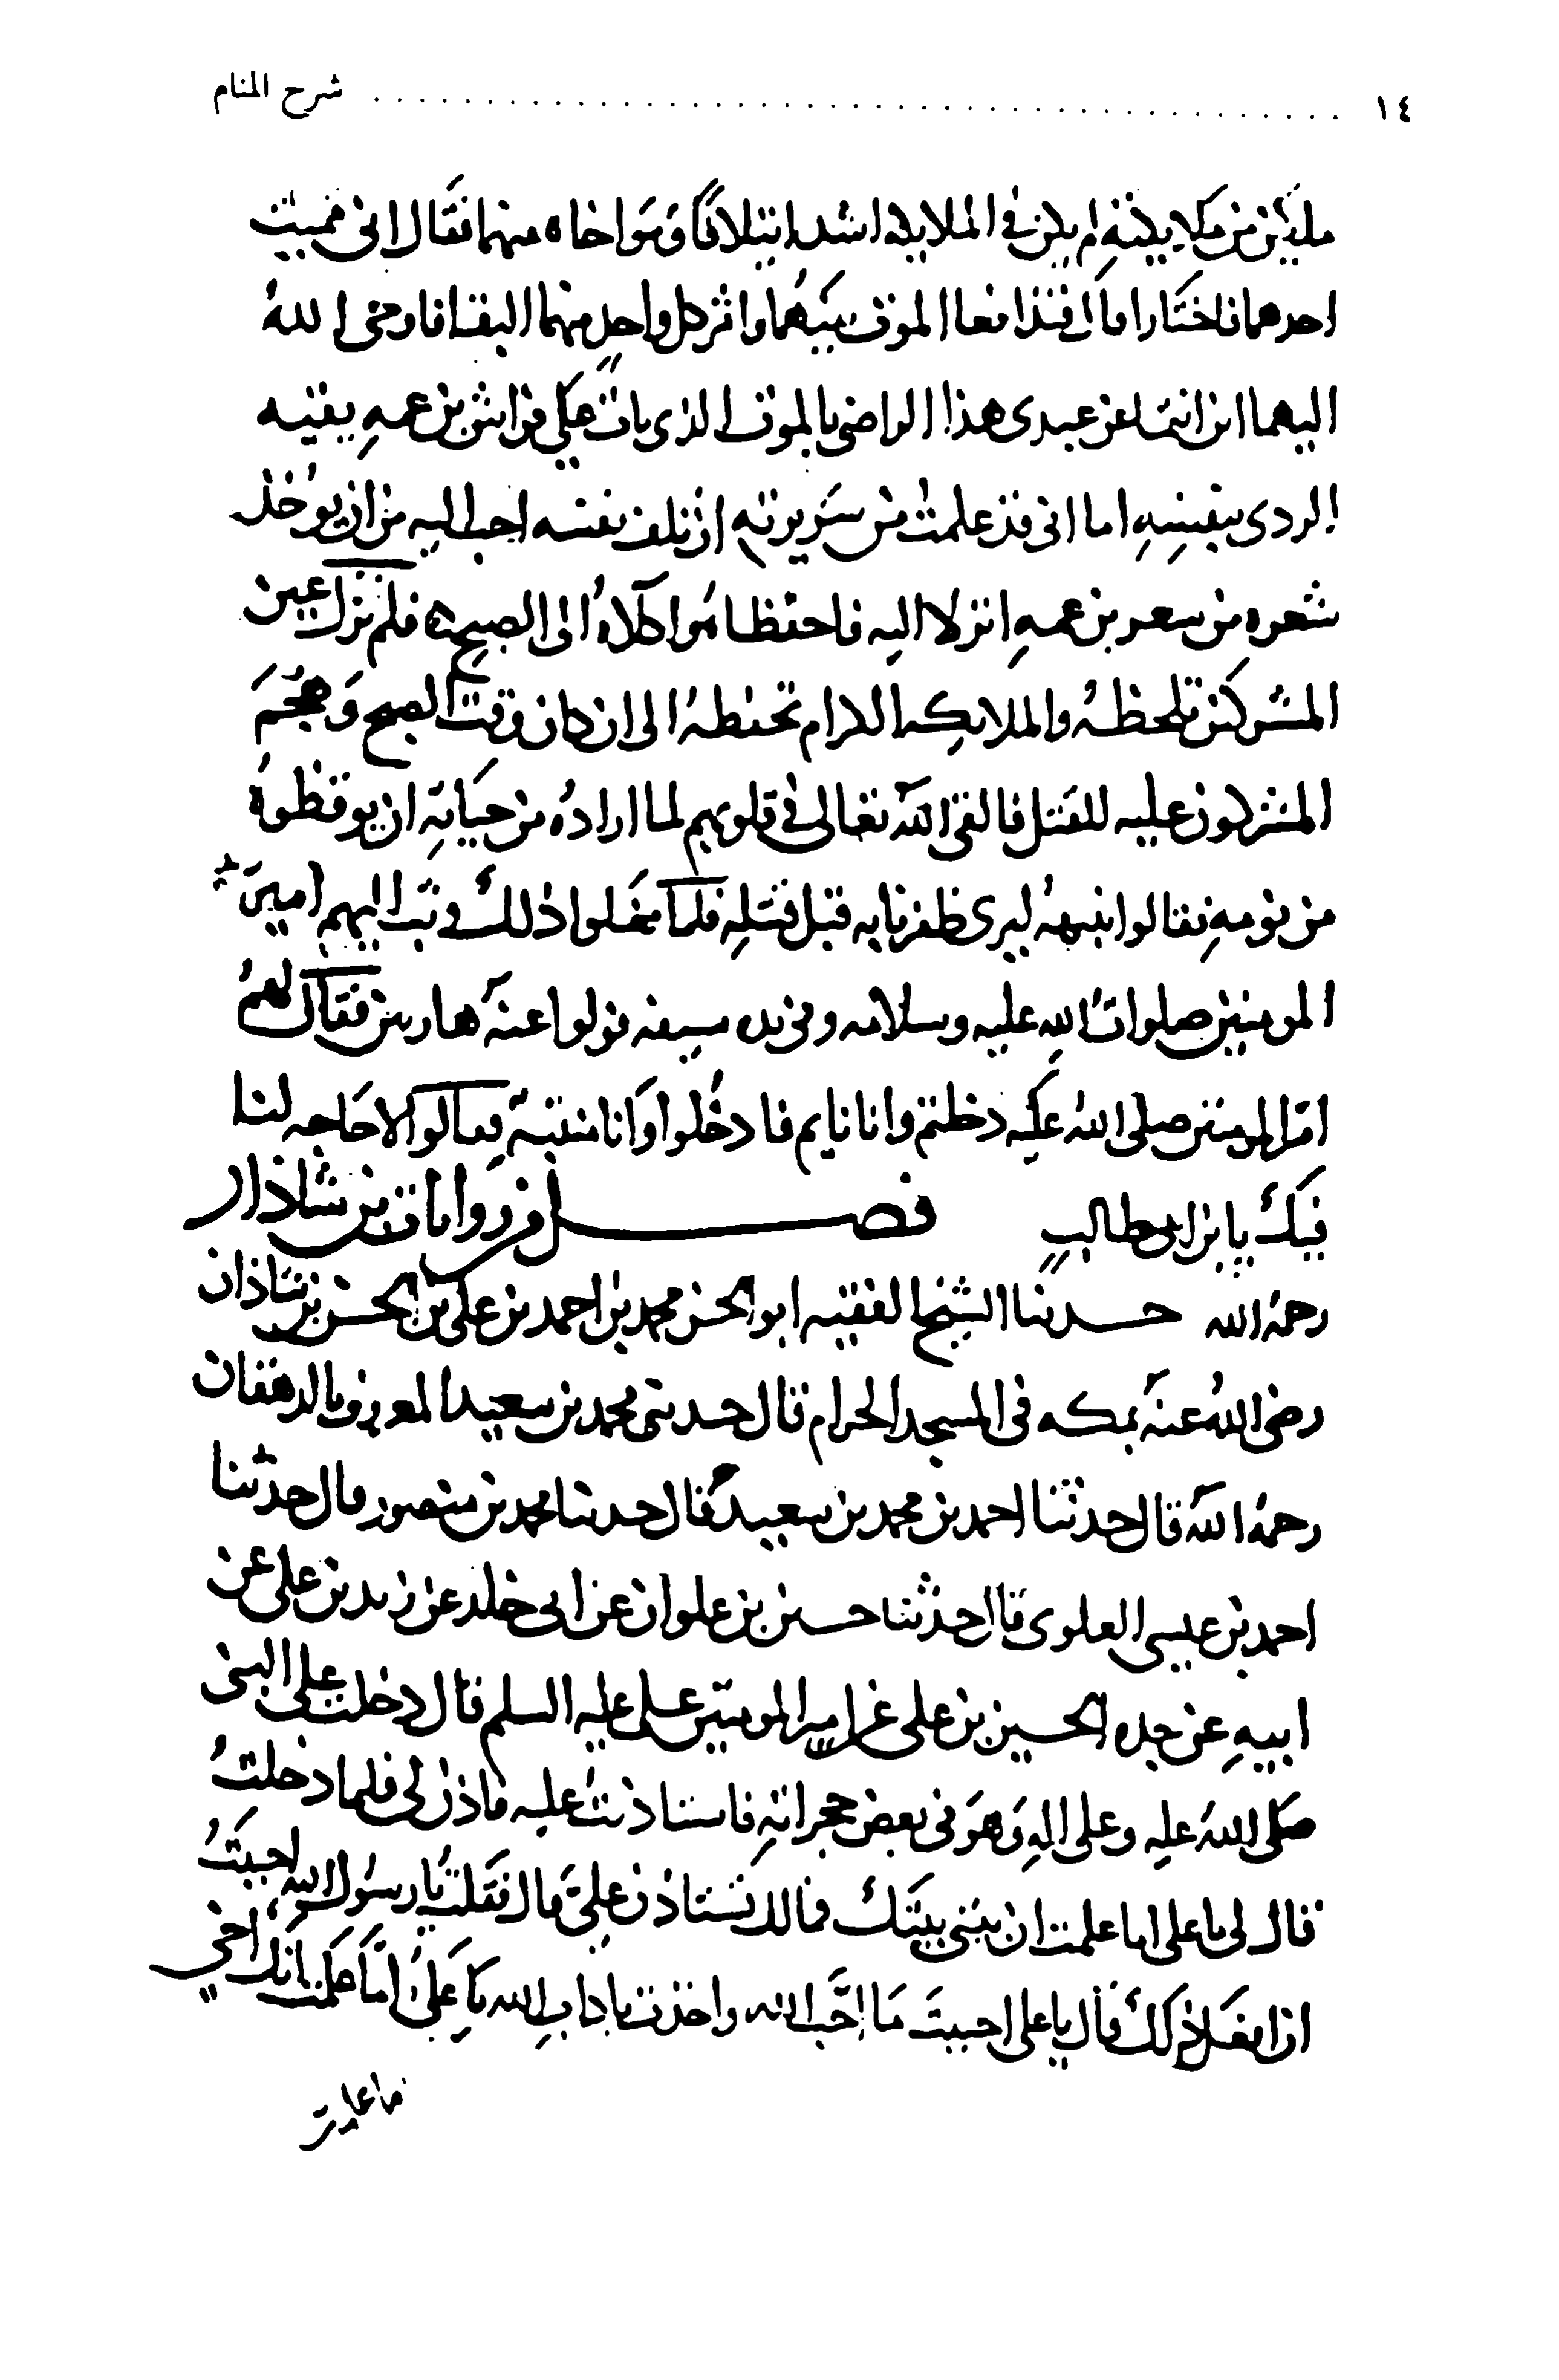 ١٤ ........................................ شرح المنام
ملكين من ملايكته لم يكن في الملايكه اشد ايتلافا ومواخاه منهما فقال اني مميت
احدكما فاختارا اماك فتدافعا الموت بينهما واثر كل واحد منهما البقا فاوحى الله
اليهما اين انتما عن عبدى هذا الراضى بالموت الذى بات على فراش بن عمه يقيه
الردى بنفسه اما انى قد علمت من سريرته ان تلف نفسه احب اليه من ان يوخذ
شعره من شعر بن عمه انزلا اليه فاحفظاه واكلاه الى الصبح فلم تزل عين
المشركين تلحظه والملايكه الكرام تحفظه الى ان كان وقت الصبح وهجم
المشركون عليه للقتل فالقى الله تعالى في قلوبهم لما اراده من حياته ان يوقظوه
من نومه فقالوا ننبهه ليرى ظفرنا به قبل قتله فلما فعلوا ذلك وثب اليهم امير
المومنين صلوات الله عليه وسلامه وفي يده سيفه فولوا عنه هاربين فقال لهم
امير المومنين صلى الله عليه دخلتم وانا نايم فادخلوا وانا منتبه فقالوا لا حاجه لنا
فيك يا بن ابى طالب فصل من روايات بن شاذان
رحمه الله حدثنا الشيخ الفقيه ابو الحسن محمد بن احمد بن على بن الحسن بن شاذان
رضى الله عنه بمكه في المسجد الحرام قال حدثنى محمد بن سعيد المعروف بالدهقان
رحمه الله قال حدثنا احمد بن محمد بن سعيد قال حدثنا محمد بن منصور قال حدثنا
احمد بن عيسى العلوى قال حدثنا حسين بن علوان عن ابى خلد عن زيد بن على عن
ابيه عن جده الحسين بن على عن امير المومنين على عليه السلم قال دخلت على النبى
صلى الله عليه وعلى اله وهو فى بعض حجراته فاستاذنت عليه فاذن لى فلما دخلت
قال لى يا على اما علمت ان بيتى بيتك فمالك تستاذن على قال فقلت يا رسول الله احببت
ان افعل ذلك قال يا على احببت ما احب الله واخذت باداب الله يا على اما علمت انك اخي